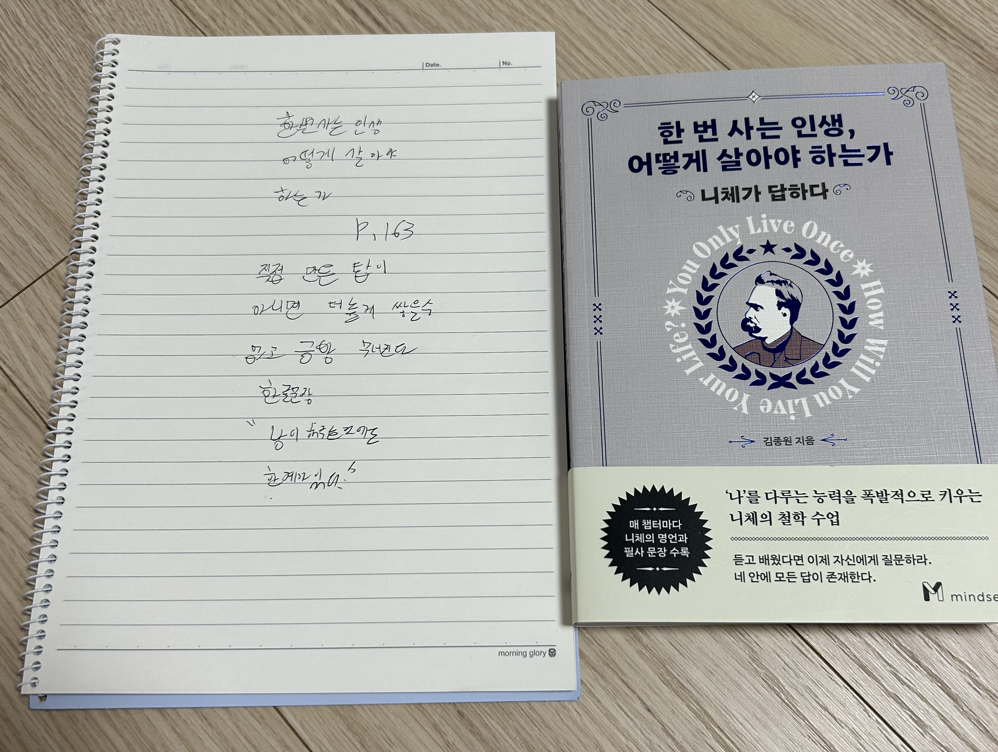 Date.
No.
한번사는 인생
어떻게 살아야
하는가
P.163
직접 만든 탑이
아니면 더높게 쌓을수
없고 금방 무너진다
한줄문장
" 남이
한계가 있다."
morning glory
한 번 사는 인생,
어떻게 살아야 하는가
니체가 답하다
You Only Live Once
How Will You Live Your Life?
김종원 지음
매 챕터마다
니체의 명언과
필사 문장 수록
‘나’를 다루는 능력을 폭발적으로 키우는
니체의 철학 수업
듣고 배웠다면 이제 자신에게 질문하라.
네 안에 모든 답이 존재한다.
mindse